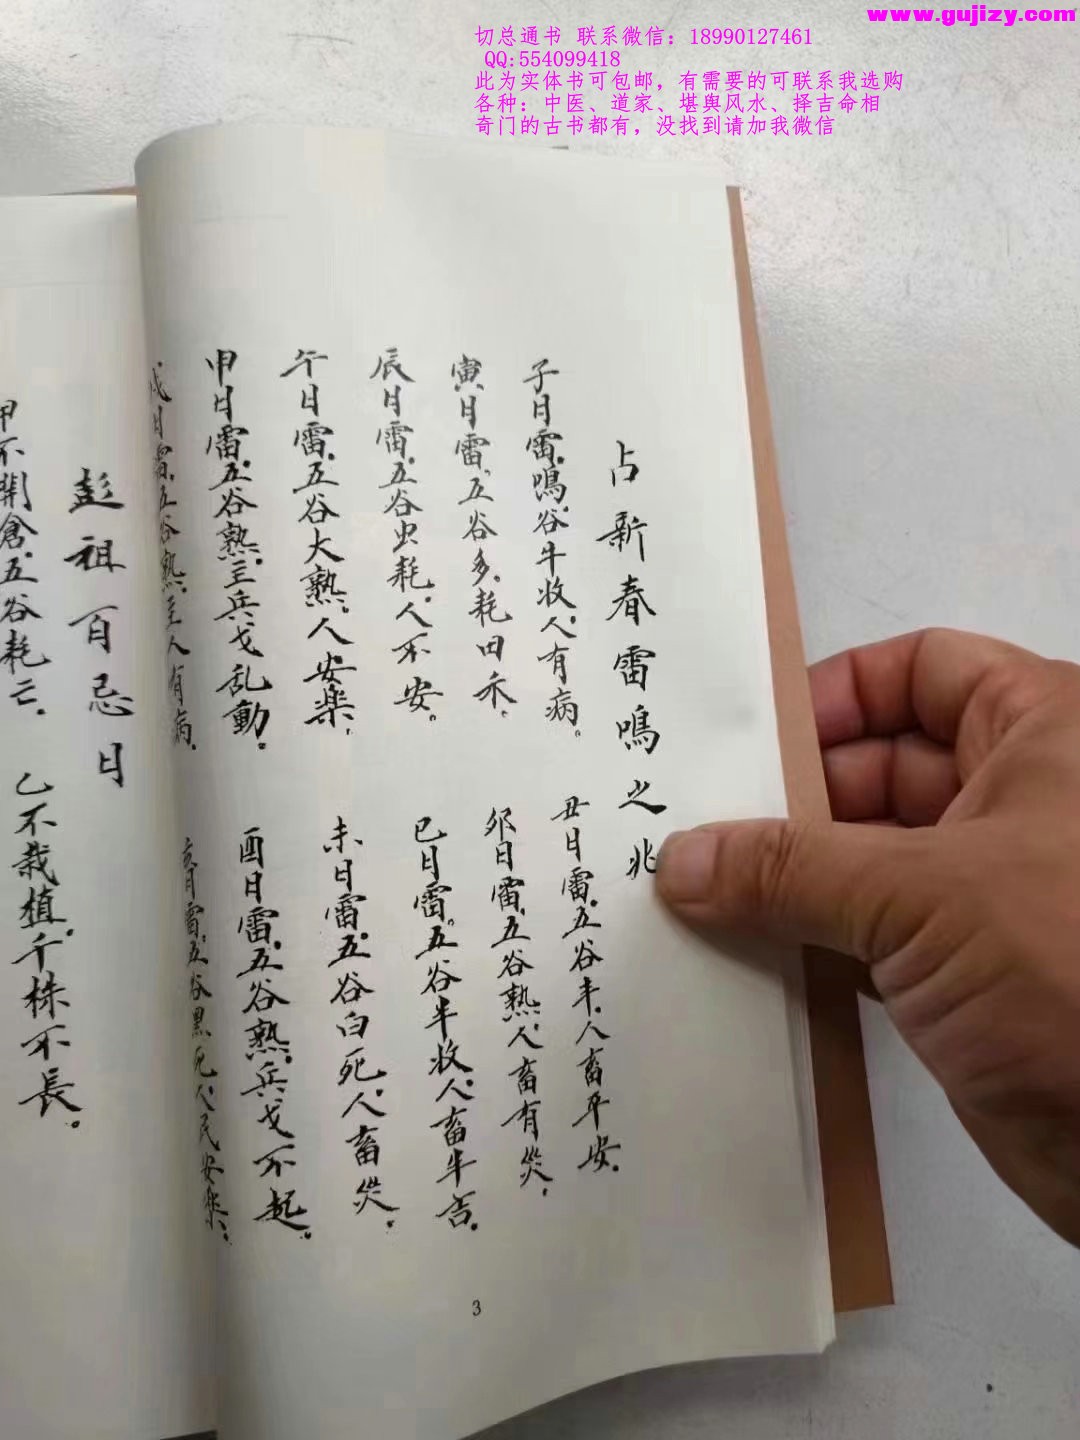 www.gujizy.com
切总通书 联系微信：18990127461
QQ:554099418
此为实体书可包邮，有需要的可联系我选购
各种：中医、道家、堪舆风水、择吉命相
奇门的古书都有，没找到请加我微信
占新春雷鳴之兆
子日雷。鳴。谷牛收。人有病。
丑日雷。五谷丰。人畜平安。
寅日雷。五谷多。耗田禾。
卯日雷。五谷熟。人畜有災。
辰日雷。五谷虫耗。人不安。
巳日雷。五谷半收。人畜半吉。
午日雷。五谷大熟。人安楽。
未日雷。五谷白死。人畜災。
申日雷。五谷熟。主兵戈乱動。
酉日雷。五谷熟。兵戈不起。
戌日雷。五谷熟。主人有病。
亥日雷。五谷黑死。人民安樂。
3
彭祖百忌日
甲不開倉。五谷耗亡。
乙不栽植。千株不長。